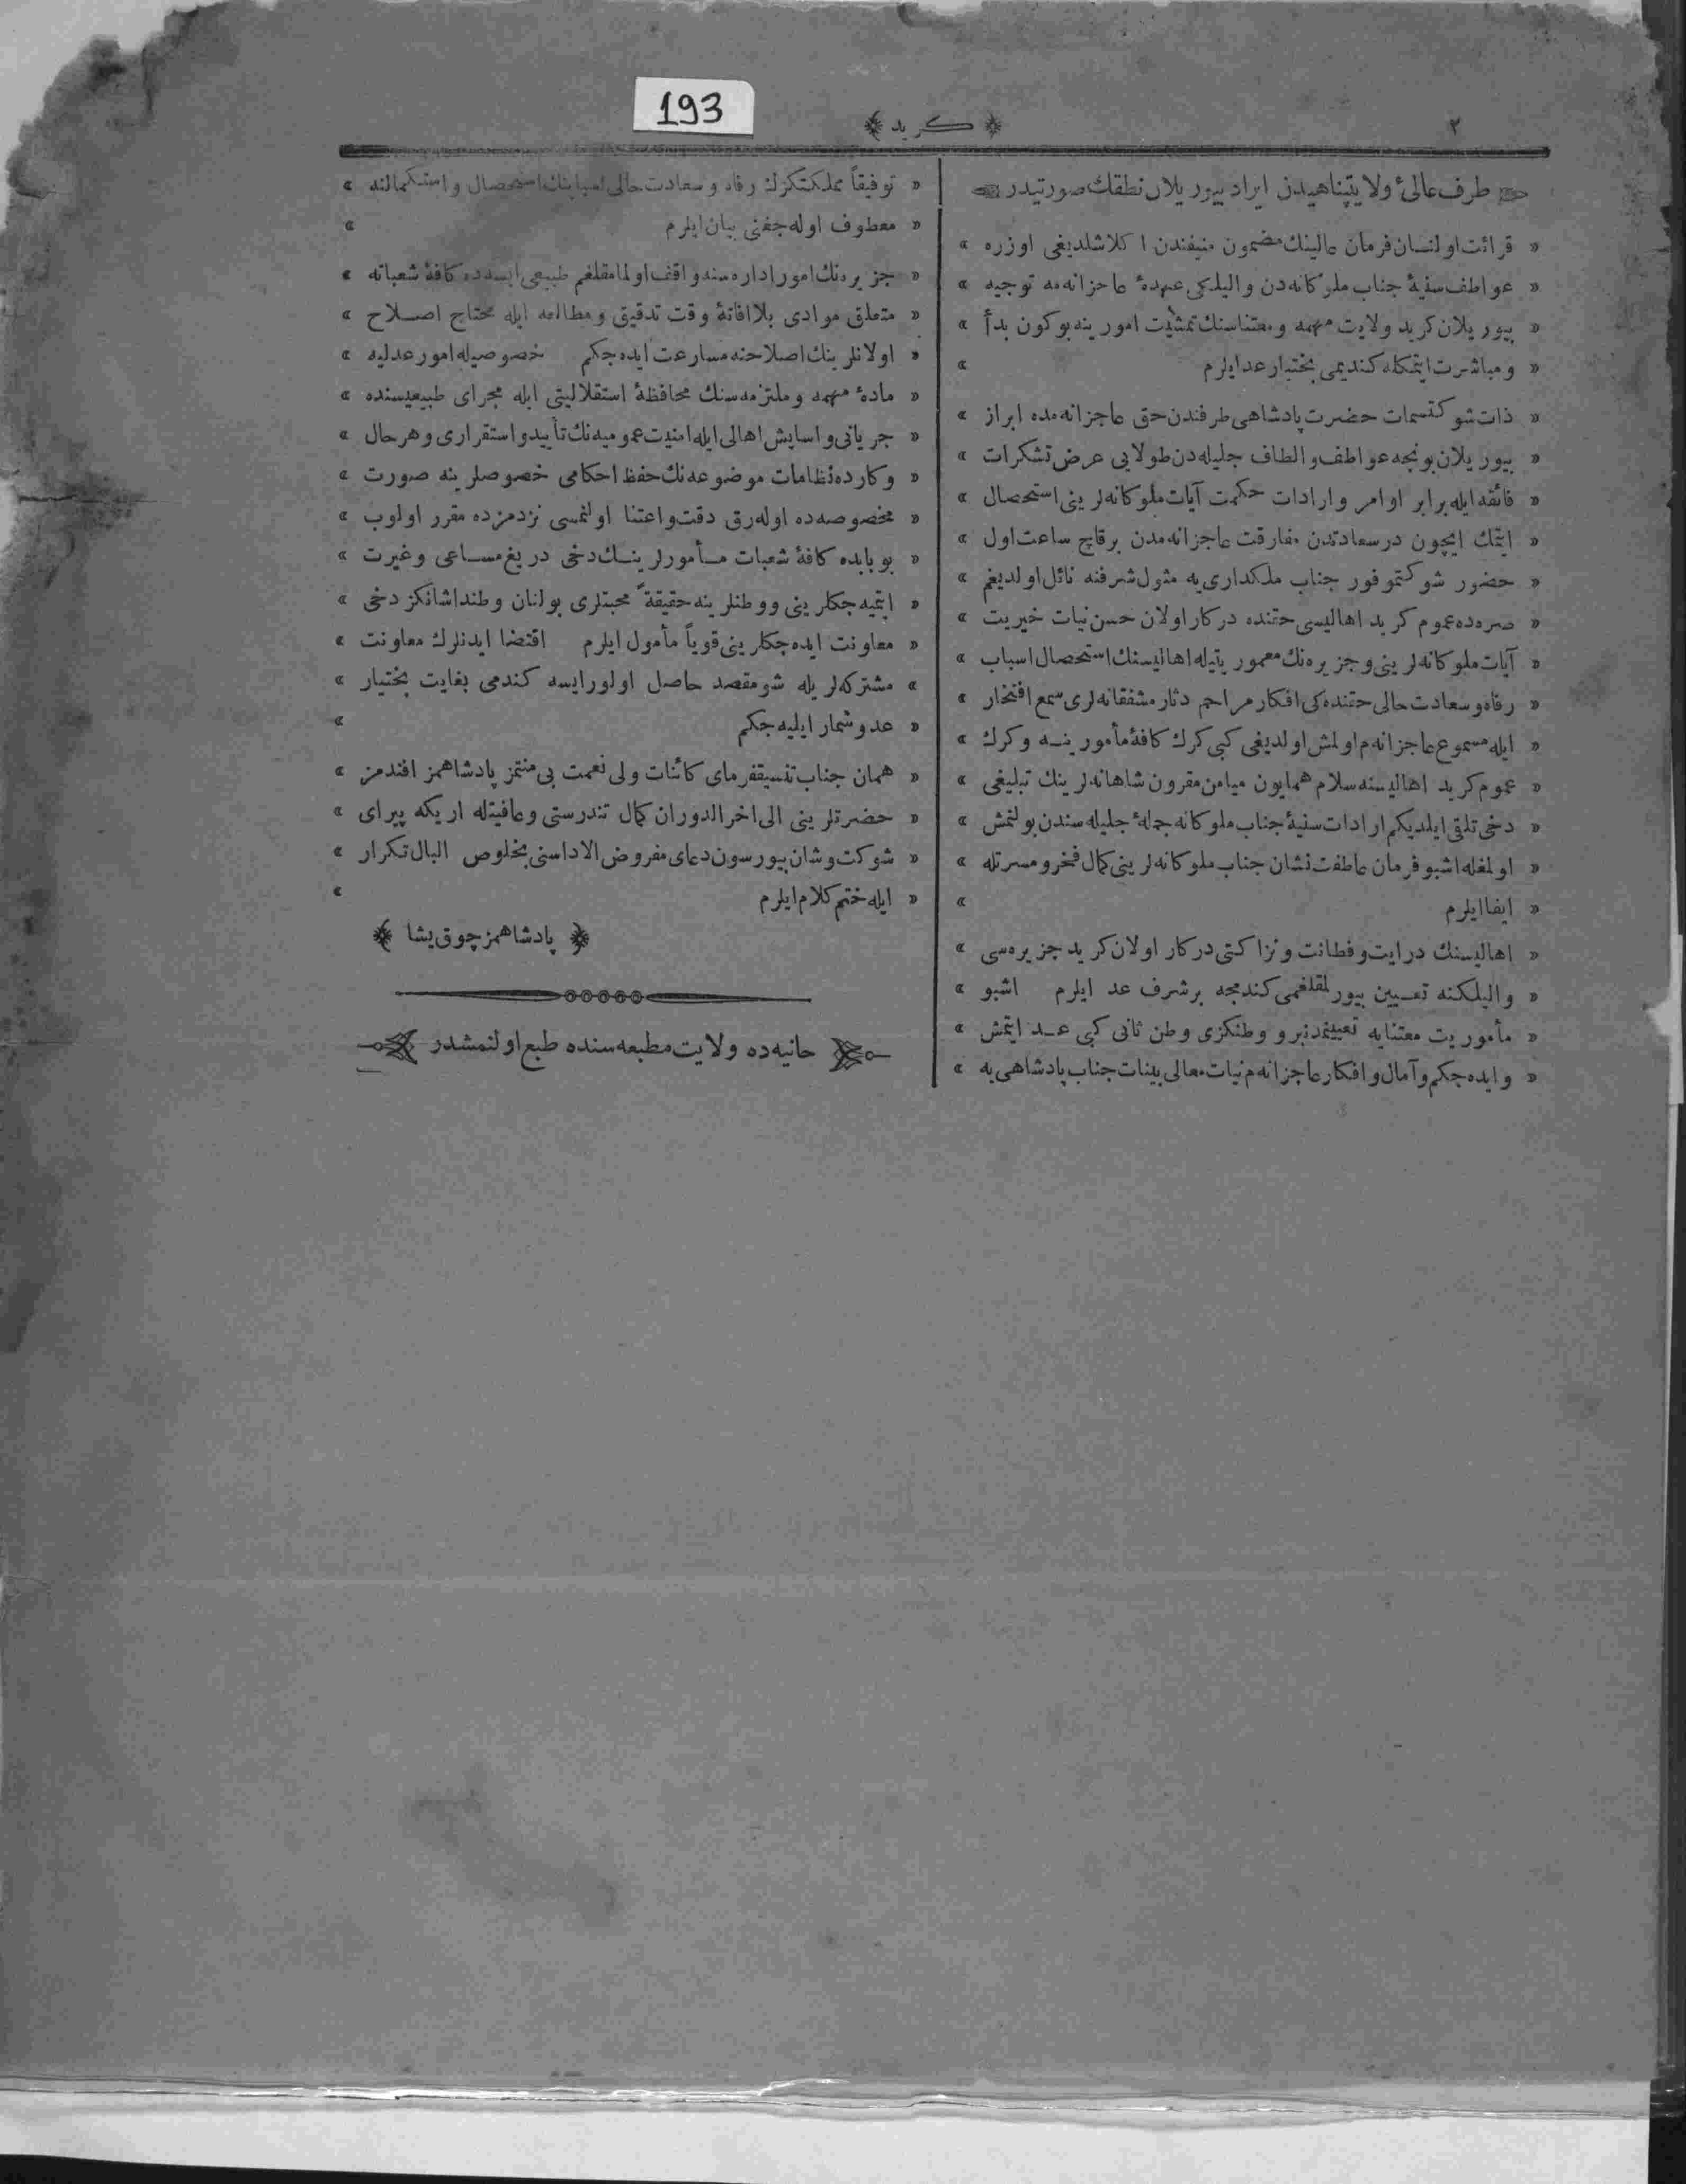 193
٢
﴿ كريد ﴾
طرف عالئ ولايتپناهيدن ايراد بيوريلان نطقك صورتيدر
« قرائت اولنان فرمان عالينك مضمون منيفندن اكلاشلديغى اوزره »
« عواطف سنيۀ جناب ملوكانه‌دن واليلكى عهدۀ عاجزانه‌مه توجيه »
« بيوريلان كريد ولايت مهمه ومعتناسنك تمشيت امورينه بوكون بدأ »
« ومباشرت ايتمكله كنديمى بختيار عد ايلرم »
« ذات شوكتسمات حضرت پادشاهى طرفندن حق عاجزانه‌مده ابراز »
« بيوريلان بونجه عواطف والطاف جليله‌دن طولايى عرض تشكرات »
« فائقه ايله برابر اوامر وارادات حكمت آيات ملوكانه‌لرينى استحصال »
« ايتمك ايچون درسعادتدن مفارقت عاجزانه‌مدن برقاچ ساعت اول »
« حضور شوكتموفور جناب ملكدارى‌يه مثول شرفنه نائل اولديغم »
« صره‌ده عموم كريد اهاليسى حقنده دركار اولان حسن نيات خيريت »
« آيات ملوكانه‌لرينى وجزيره‌نك معموريتيله اهاليسنك استحصال اسباب »
« رفاه وسعادت حالى حقنده‌كى افكار مراحم دثار مشفقانه‌لرى سمع افتخار »
« ايله مسموع عاجزانه‌م اولمش اولديغى كبى كرك كافۀ مأمورينه وكرك »
« عموم كريد اهاليسنه سلام همايون ميامن مقرون شاهانه‌لرينك تبليغى »
« دخى تلقى ايلديكم ارادات سنيۀ جناب ملوكانه جملۀ جليله سندن بولنمش »
« اولمغله اشبو فرمان عاطفت نشان جناب ملوكانه‌لرينى كمال فخر ومسرتله »
« ايفا ايلرم »
« اهاليسنك درايت وفطانت ونزاكتى دركار اولان كريد جزيره‌سى »
« واليلكنه تعيين بيورلمقلغمى كندمجه برشرف عد ايلرم اشبو »
« مأموريت معتنايه تعيينمدنبرو وطنكزى وطن ثانى كبى عد ايتمش »
« وايده‌جكم وآمال وافكار عاجزانه‌م نيات معالى بينات جناب پادشاهى‌يه »
« توفيقاً مملكتكزك رفاه وسعادت حالى اسبابنك استحصال واستكمالنه »
« معطوف اوله‌جغنى بيان ايلرم »
« جزيره‌نك امور اداره‌سنه واقف اولمامقلغم طبيعى ايسه‌ده كافۀ شعباته »
« متعلق موادى بلا افاتۀ وقت تدقيق ومطالعه ايله محتاج اصلاح »
« اولانلرينك اصلاحنه مسارعت ايده‌جكم خصوصيله امور عدليه »
« مادۀ مهمه وملتزمه‌سنك محافظۀ استقلاليتى ايله مجراى طبيعيسنده »
« جريانى واسايش اهالى ايله امنيت عموميه‌نك تأييد واستقرارى وهرحال »
« وكارده نظامات موضوعه‌نك حفظ احكامى خصوصلرينه صورت »
« مخصوصه‌ده اوله‌رق دقت واعتنا اولنمسى نزدمزده مقرر اولوب »
« بوبابده كافۀ شعبات مأمورلرينك دخى دريغ مساعى وغيرت »
« ايتميه‌جكلرينى ووطنلرينه حقيقةً محبتلرى بولنان وطنداشانكز دخى »
« معاونت ايده‌جكلرينى قوياً مأمول ايلرم اقتضا ايدنلرك معاونت »
« مشتركه‌لريله شو مقصد حاصل اولورايسه كندمى بغايت بختيار »
« عد وشمار ايليه‌جكم »
« همان جناب تفسيقفرماى كائنات ولى نعمت بى منتمز پادشاهمز افندمز »
« حضرتلرينى الى اخر الدوران كمال تندرستى وعافيتله اريكه پيراى »
« شوكت وشان بيورسون دعاى مفروض الاداسنى بخلوص البال تكرار »
« ايله ختم كلام ايلرم »
﴿ پادشاهمز چوق يشا ﴾
حانيه‌ده ولايت مطبعه‌سنده طبع اولنمشدر